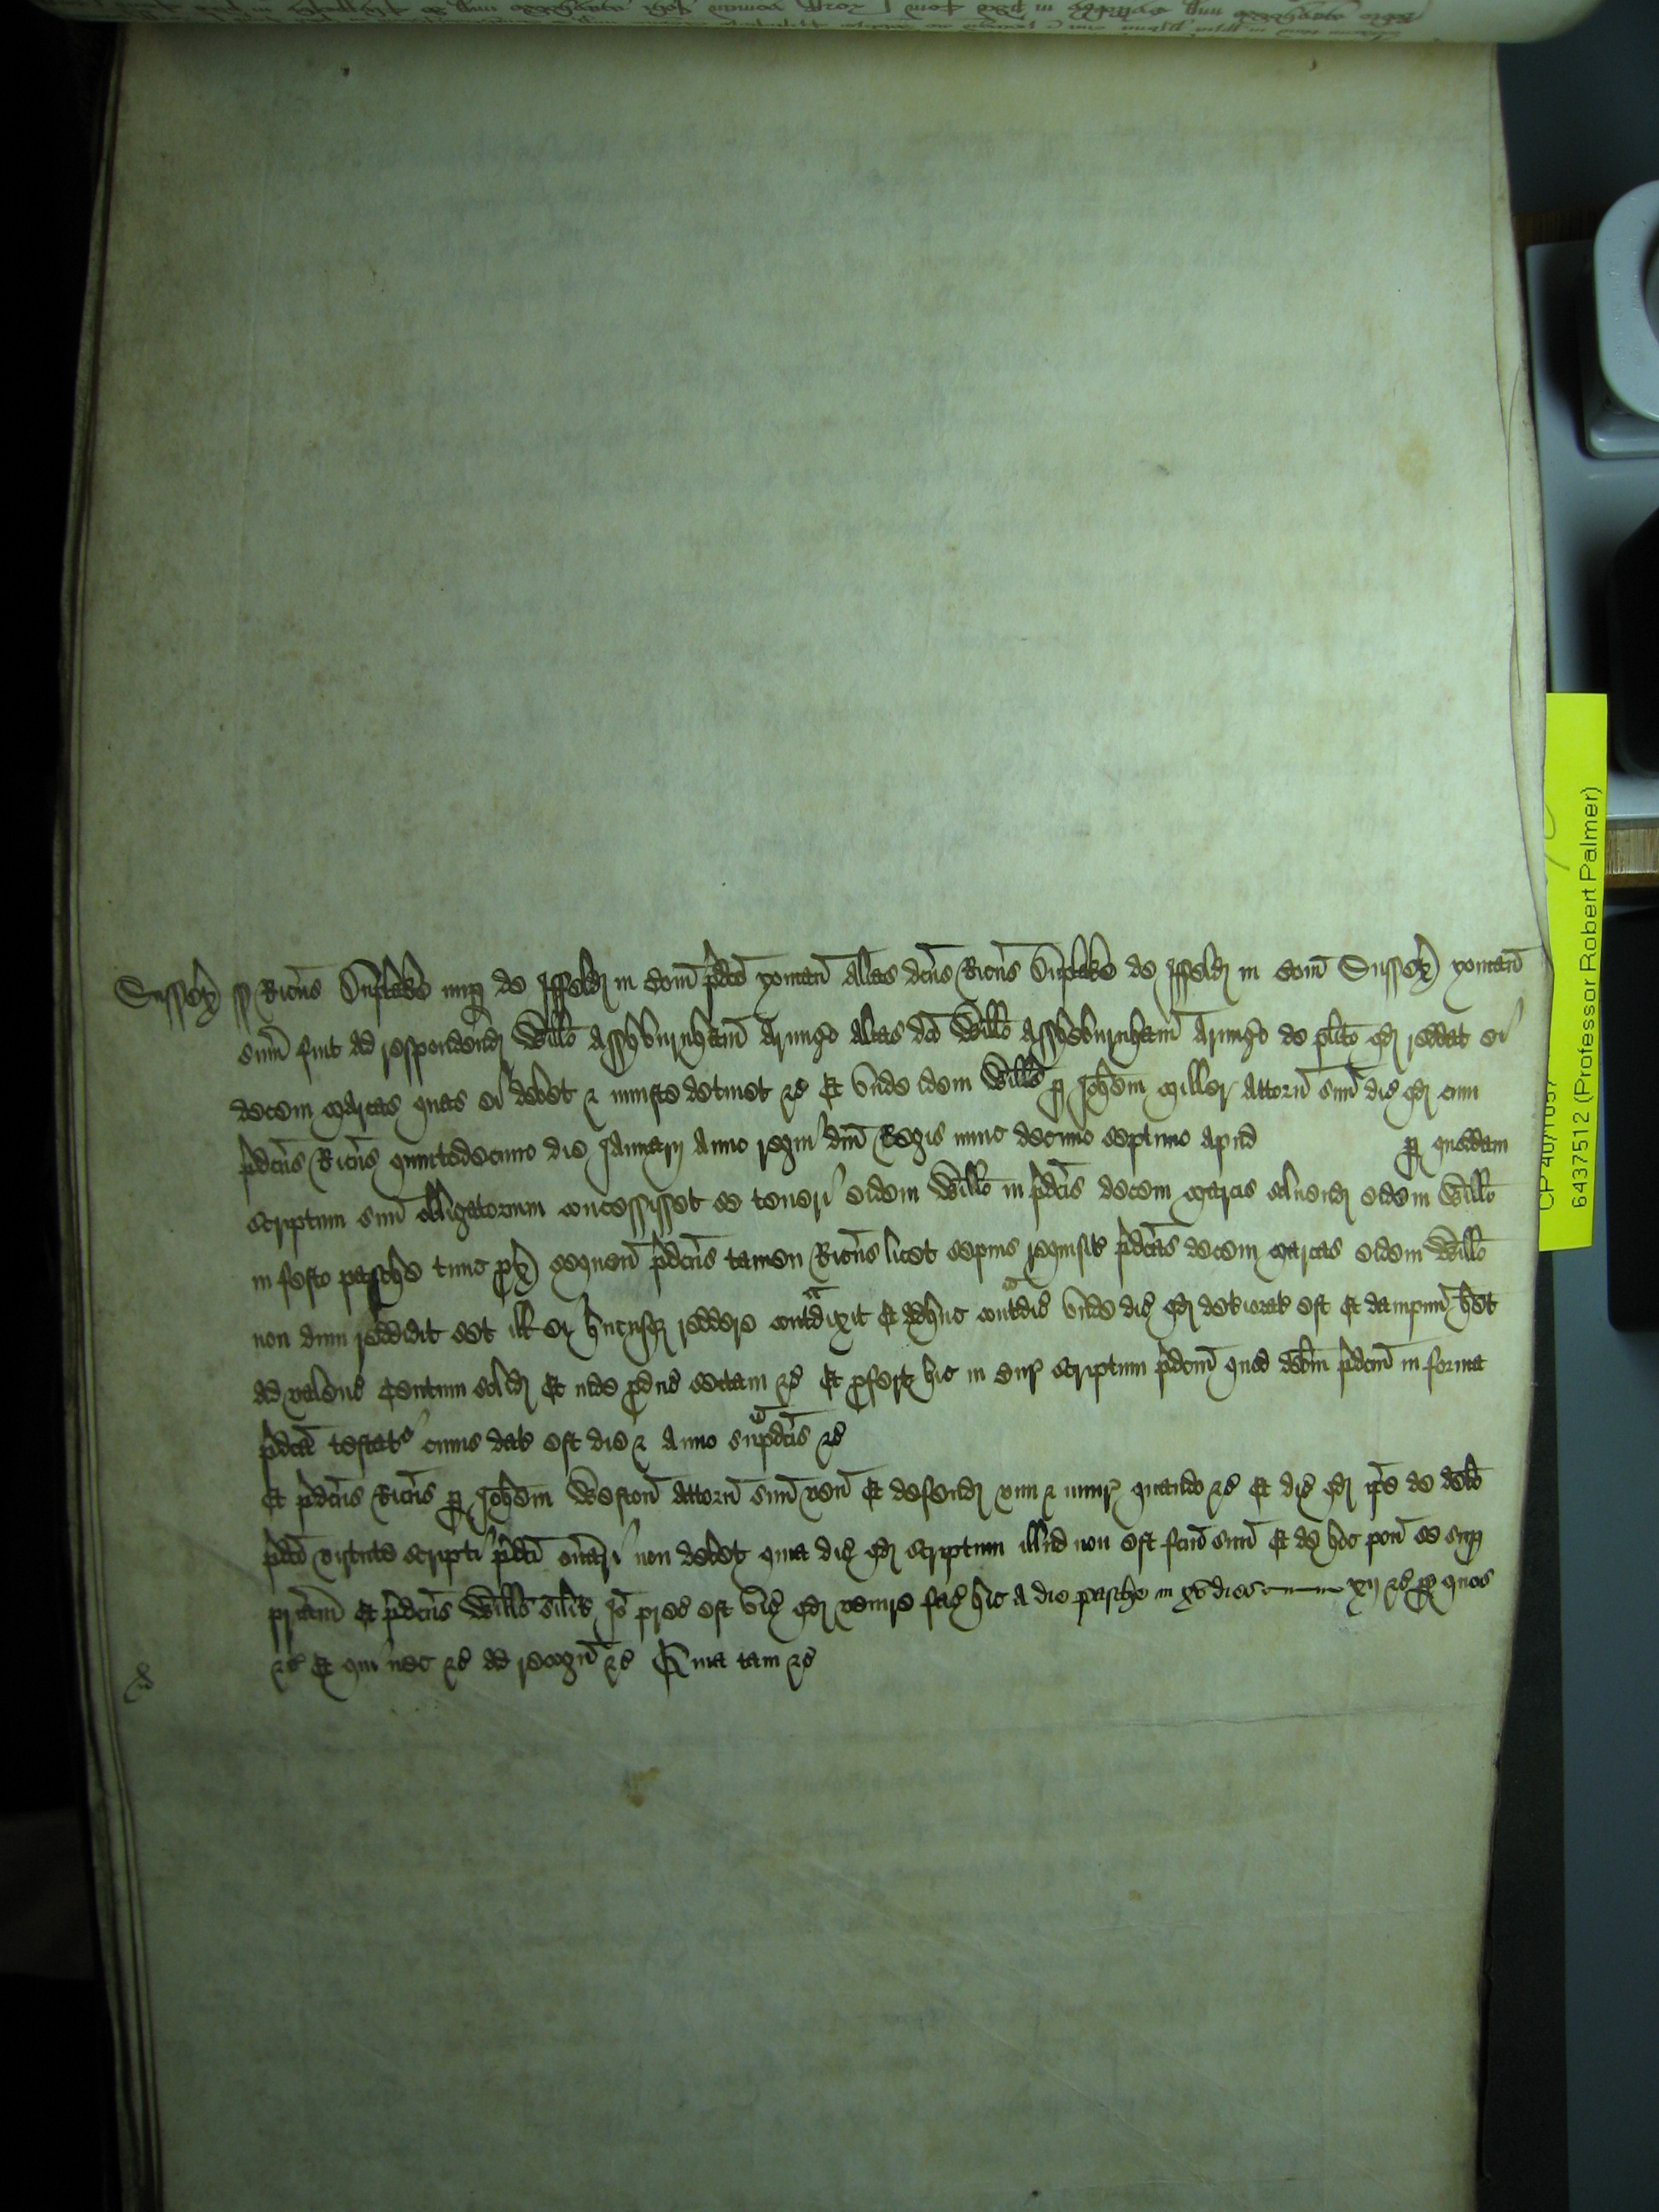 Sussex ss Ricus Vnptake nup de Iffeld in Com pdco yoman alias dcus Ricus Vnptake de Iffeld in Com Sussex yoman
sum fuit ad respondend Willo Asshburnham Armigo alias dco Willo Assheburnham Armigo de plito qd reddat ei
decem marcas quas ei debet & iniuste detinet &c Et vnde idem Wills p Johem Miller Attorn suu dic qd cum
pdcus Ricus quintodecimo die Januarij Anno regni dni Regis nunc decimo septimo apud p quoddam
scriptum suu obligatorium concessisset se teneri eidem Willo in pdcis decem marcis soluend eidem Willo
in festo pasche tunc px sequen pdcus tamen Ricus licet sepius requisit pdcas decem marcas eidem Willo
non dum reddidit set ill ei hucusq reddere contadixit Et adhuc contadic vnde dic qd deteriorat est Et dampnu het
ad valenc Centum solid Et inde pduc sectam &c Et pfert hic in Cur scriptum pdcm quod debm pdcm in forma
pdca testat cuius dat est die & Anno supadcis &c
Et pdcus Ricus p Johem Weston Attorn suu ven Et defend vim & iniur quando &c Et dic qd ipe de debo
pdco virtute scripti pdci onari non debet quia dic qd scriptum illud non est fcm suu Et de hoc pon se sup
priam Et pdcus Wills silit Io prec est vic qd venire fac hic a die pasche in xv dies xij &c p quos
&c Et qui nec &c ad recogn &c Quia tam &c
CP 40/1057
6437512 (Professor Robert Palmer)